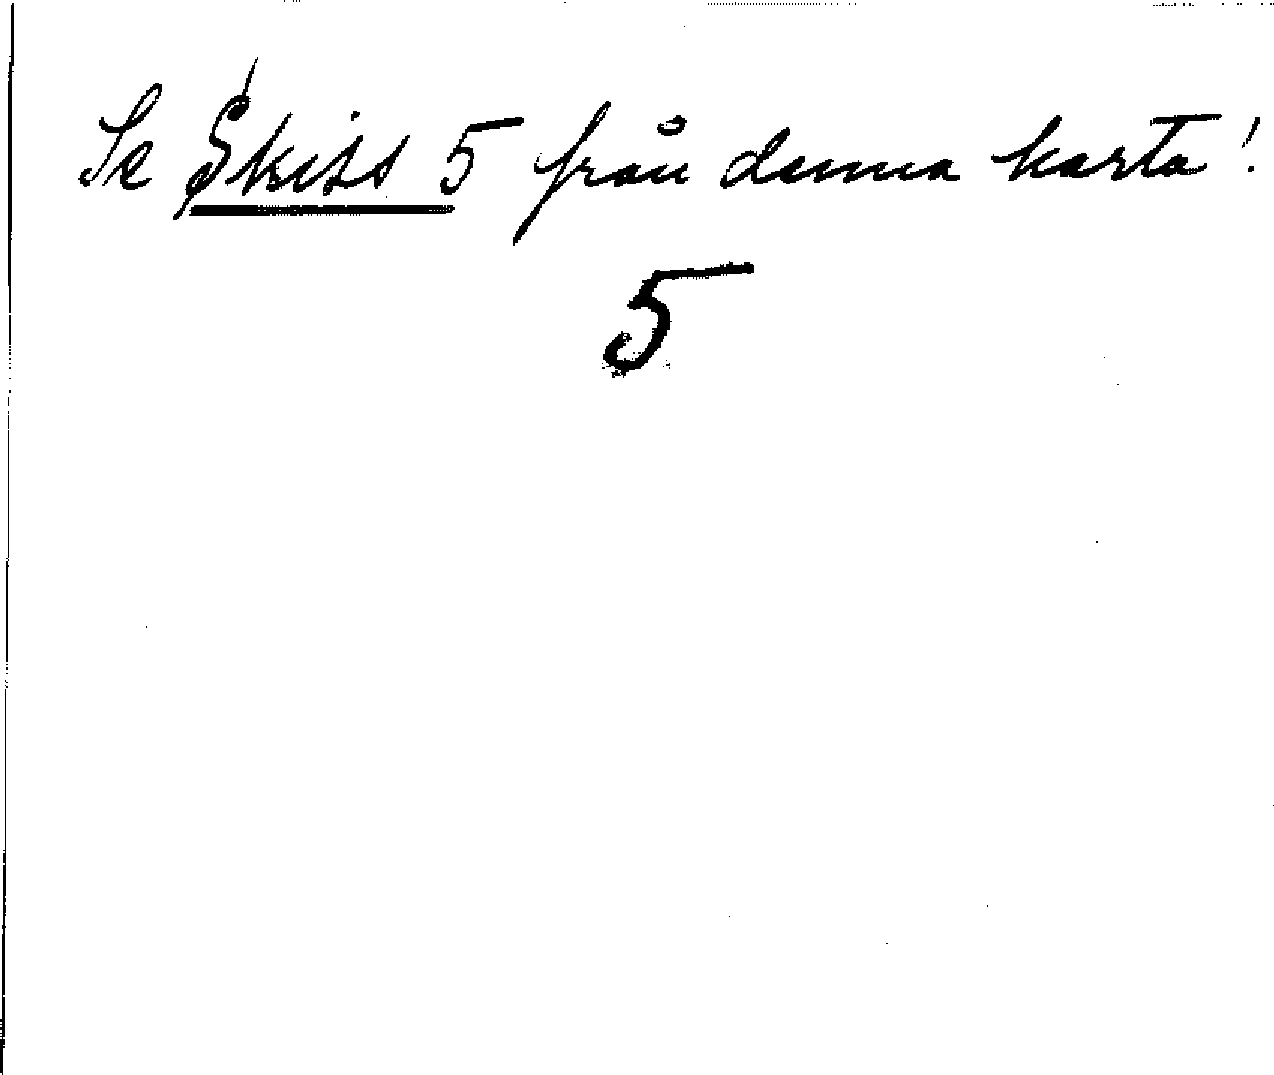 Se Skiss 5 från denna karta!
5